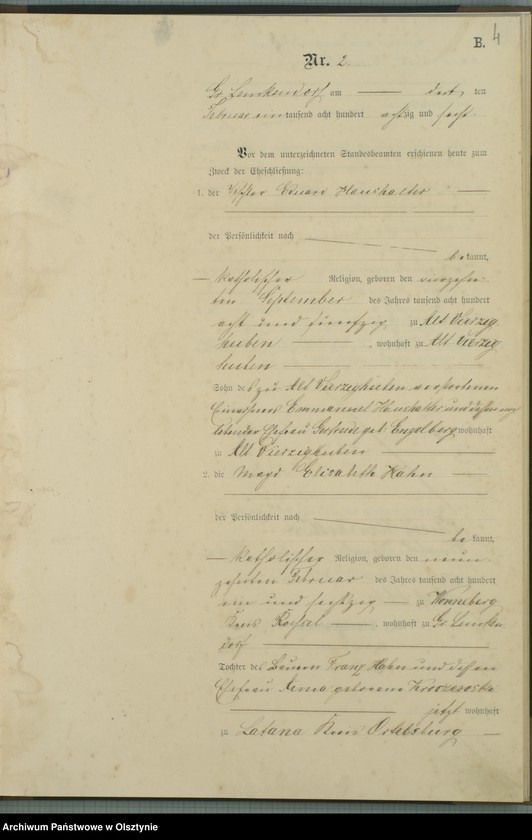 B. 4
Nr. 2.
Gr. Lemkendorf am dritten
Februar ein tausend acht hundert achtzig und sechs.
Vor dem unterzeichneten Standesbeamten erschienen heute zum
Zweck der Eheschließung:
1. der Eduard Hanshalter
der Persönlichkeit nach
bekannt,
katholischer Religion, geboren den vierzehn-
ten September des Jahres tausend acht hundert
acht und fünfzig zu Alt Vierzig
huben, wohnhaft zu Alt Vierzig
huben
Sohn des zu Alt Vierzighuben verstorbenen
Einwohners Emmanuel Hanshalter und dessen noch
lebender Ehefrau geb. Engelberg wohnhaft
zu Alt Vierzighuben
2. die Magd Elisabeth Hahn
der Persönlichkeit nach
bekannt,
katholischer Religion, geboren den neun-
zehnten Februar des Jahres tausend acht hundert
ein und sechzig zu Wonneberg
Kreis Roessel, wohnhaft zu Gr. Lemken
dorf
Tochter des Bauern Franz Hahn und dessen
Ehefrau geborene
jetzt wohnhaft
zu Latana Kreis Ortelsburg
Archiwum Państwowe w Olsztynie